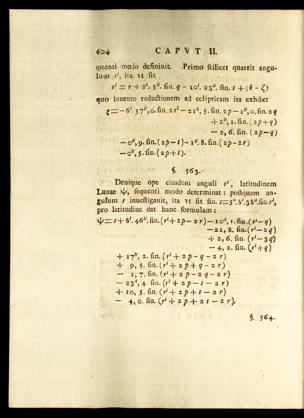 604 CAPVT II.
quenti modo definiuit. Primo ſcilicet quaerit angu-
lum r', ita vt ſit
r' = r + 2'. 5". ſin. q - 10'. 23". ſin. s + (θ - ζ)
quo inuento reductionem ad eclipticam ita exhibet
ϱ = -6'. 57", 0. ſin. 2r' - 21", 5. ſin. 2p - 1", 0. ſin. 2q
+ 2", 1. ſin. (2p+q)
- 2, 6. ſin. (2p-q)
- 0", 9. ſin. (2p-s) - 1", 8. ſin. (2p-2r)
- 0", 5. ſin. (2p+s).
§. 563.
Denique ope eiusdem anguli r', latitudinem
Lunae ψ, ſequenti modo determinat: poſtquam an-
gulum s inueſtigauit, ita vt ſit ſin. s = 5°. 8'. 38". ſin. r',
pro latitudine dat hanc formulam:
ψ = s + 8'. 46". ſin. (r' + 2p - 2r) - 10", 1. ſin. (r'-q)
- 21, 8. ſin. (r'-2q)
+ 2, 6. ſin. (r'-3q)
- 4, 2. ſin. (r'+q)
+ 17", 2. ſin. (r' + 2p - q - 2r)
+ 9, 5. ſin. (r' + 2p + q - 2r)
- 1, 7. ſin. (r' + 2p - 2q - 2r)
- 23", 4. ſin. (r' + 2p - s - 2r)
+ 10, 5. ſin. (r' + 2p + s - 2r)
- 4, 0. ſin. (r' + 2p + 2s - 2r).
§. 564.